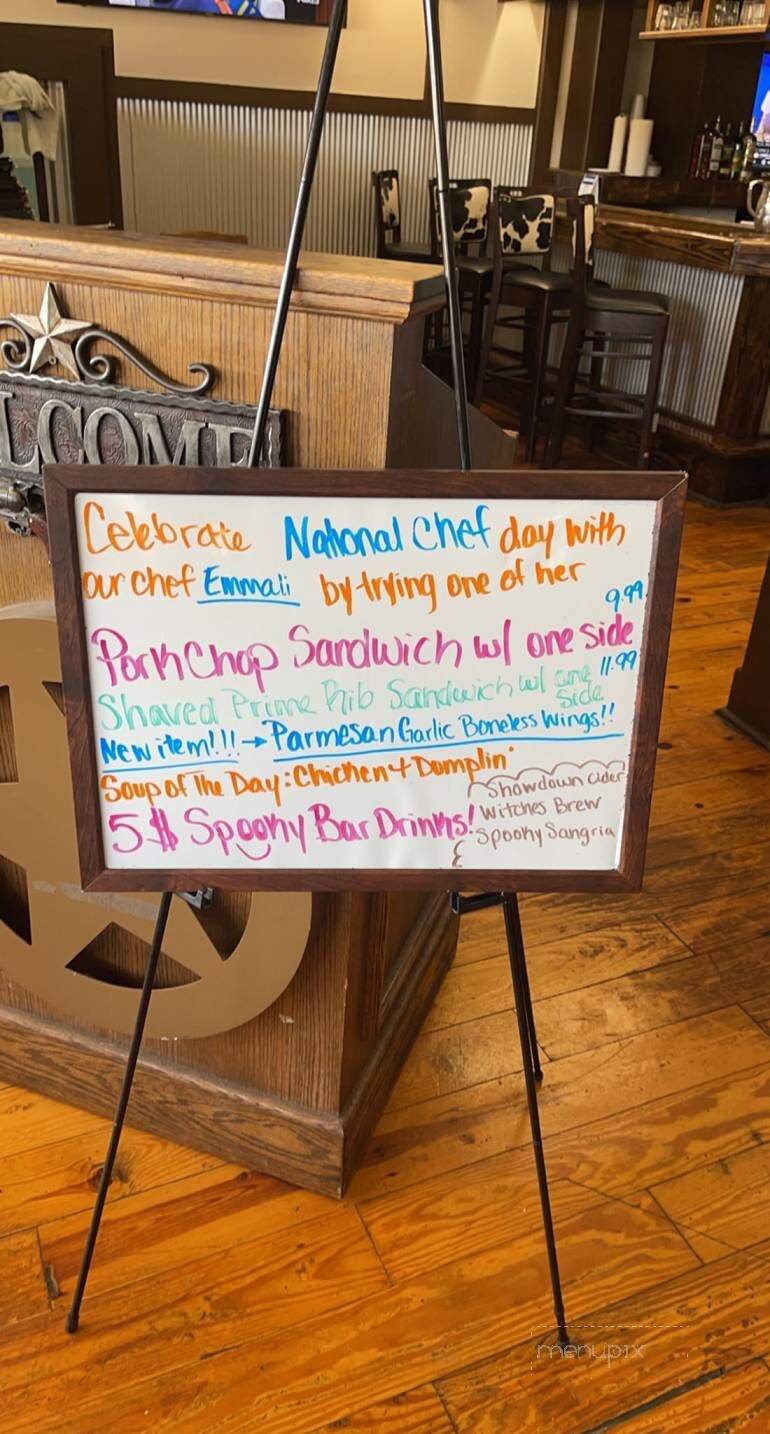 ELCOME
Celebrate National Chef day with
our chef Emmali by trying one of her
Pork Chop Sandwich w/ one side 9.99
Shaved Prime Rib Sandwich w/ one side 11.99
New item!!!→Parmesan Garlic Boneless Wings!!
Soup of The Day: Chicken + Dumplin'
5$ Spooky Bar Drinks!
Showdown Cider
Witches Brew
Spooky Sangria
menupix